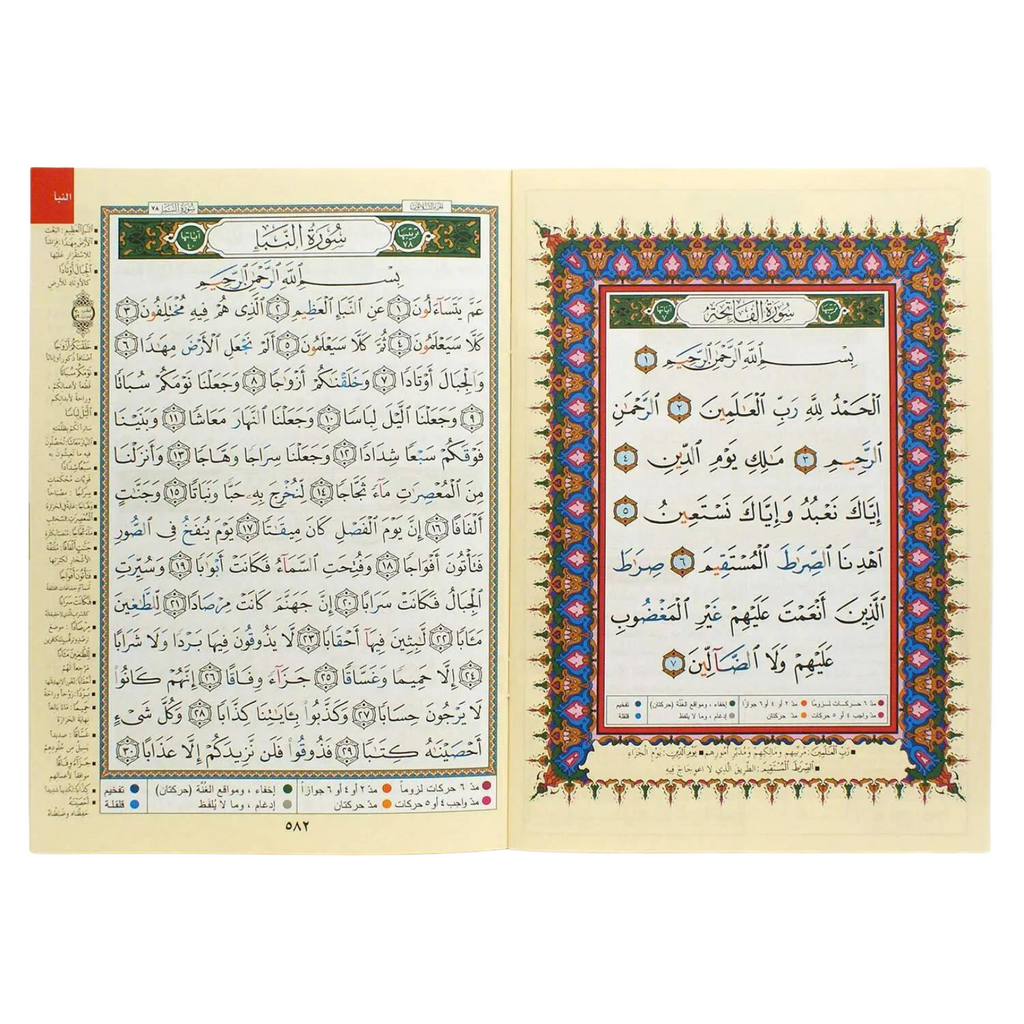 سُورَةُ الْفَاتِحَةِ
بِسْمِ ٱللَّهِ ٱلرَّحْمَٰنِ ٱلرَّحِيمِ ١
ٱلْحَمْدُ لِلَّهِ رَبِّ ٱلْعَٰلَمِينَ ٢ ٱلرَّحْمَٰنِ
ٱلرَّحِيمِ ٣ مَٰلِكِ يَوْمِ ٱلدِّينِ ٤
إِيَّاكَ نَعْبُدُ وَإِيَّاكَ نَسْتَعِينُ ٥
ٱهْدِنَا ٱلصِّرَٰطَ ٱلْمُسْتَقِيمَ ٦ صِرَٰطَ
ٱلَّذِينَ أَنْعَمْتَ عَلَيْهِمْ غَيْرِ ٱلْمَغْضُوبِ
عَلَيْهِمْ وَلَا ٱلضَّآلِّينَ ٧
مدّ ٦ حركات لزوماً مدّ ٢ أو ٤ أو ٦ جوازاً إخفاء، ومواقع الغُنَّة (حركتان) تفخيم
مدّ واجب ٤ أو ٥ حركات مدّ حركتان إدغام، وما لا يُلفظ قلقلة
رَبِّ الْعَالَمِينَ: مُرَبِّيهم ومَالِكِهم ومُدَبِّرِ أُمُورِهم يَوْمِ الدِّينِ: يَوْمِ الْجَزَاءِ
الصِّرَاطَ الْمُسْتَقِيمَ: الطريق الذي لا اعوجاج فيه
النبأ
سُورَةُ النَّبَإِ ٧٨
الجزء الثلاثون
ترتيبها ٧٨ سُورَةُ النَّبَإِ آياتها ٤٠
بِسْمِ ٱللَّهِ ٱلرَّحْمَٰنِ ٱلرَّحِيمِ
عَمَّ يَتَسَآءَلُونَ ١ عَنِ ٱلنَّبَإِ ٱلْعَظِيمِ ٢ ٱلَّذِى هُمْ فِيهِ مُخْتَلِفُونَ ٣
كَلَّا سَيَعْلَمُونَ ٤ ثُمَّ كَلَّا سَيَعْلَمُونَ ٥ أَلَمْ نَجْعَلِ ٱلْأَرْضَ مِهَٰدًا ٦
وَٱلْجِبَالَ أَوْتَادًا ٧ وَخَلَقْنَٰكُمْ أَزْوَٰجًا ٨ وَجَعَلْنَا نَوْمَكُمْ سُبَاتًا
٩ وَجَعَلْنَا ٱلَّيْلَ لِبَاسًا ١٠ وَجَعَلْنَا ٱلنَّهَارَ مَعَاشًا ١١ وَبَنَيْنَا
فَوْقَكُمْ سَبْعًا شِدَادًا ١٢ وَجَعَلْنَا سِرَاجًا وَهَّاجًا ١٣ وَأَنزَلْنَا
مِنَ ٱلْمُعْصِرَٰتِ مَآءً ثَجَّاجًا ١٤ لِّنُخْرِجَ بِهِۦ حَبًّا وَنَبَاتًا ١٥ وَجَنَّٰتٍ
أَلْفَافًا ١٦ إِنَّ يَوْمَ ٱلْفَصْلِ كَانَ مِيقَٰتًا ١٧ يَوْمَ يُنفَخُ فِى ٱلصُّورِ
فَتَأْتُونَ أَفْوَاجًا ١٨ وَفُتِحَتِ ٱلسَّمَآءُ فَكَانَتْ أَبْوَٰبًا ١٩ وَسُيِّرَتِ
ٱلْجِبَالُ فَكَانَتْ سَرَابًا ٢٠ إِنَّ جَهَنَّمَ كَانَتْ مِرْصَادًا ٢١ لِّلطَّٰغِينَ
مَـَٔابًا ٢٢ لَّٰبِثِينَ فِيهَآ أَحْقَابًا ٢٣ لَّا يَذُوقُونَ فِيهَا بَرْدًا وَلَا شَرَابًا
٢٤ إِلَّا حَمِيمًا وَغَسَّاقًا ٢٥ جَزَآءً وِفَاقًا ٢٦ إِنَّهُمْ كَانُوا۟
لَا يَرْجُونَ حِسَابًا ٢٧ وَكَذَّبُوا۟ بِـَٔايَٰتِنَا كِذَّابًا ٢٨ وَكُلَّ شَىْءٍ
أَحْصَيْنَٰهُ كِتَٰبًا ٢٩ فَذُوقُوا۟ فَلَن نَّزِيدَكُمْ إِلَّا عَذَابًا ٣٠
مدّ ٦ حركات لزوماً مدّ ٢ أو ٤ أو ٦ جوازاً إخفاء، ومواقع الغُنَّة (حركتان) تفخيم
مدّ واجب ٤ أو ٥ حركات مدّ حركتان إدغام، وما لا يُلفظ قلقلة
٥٨٢